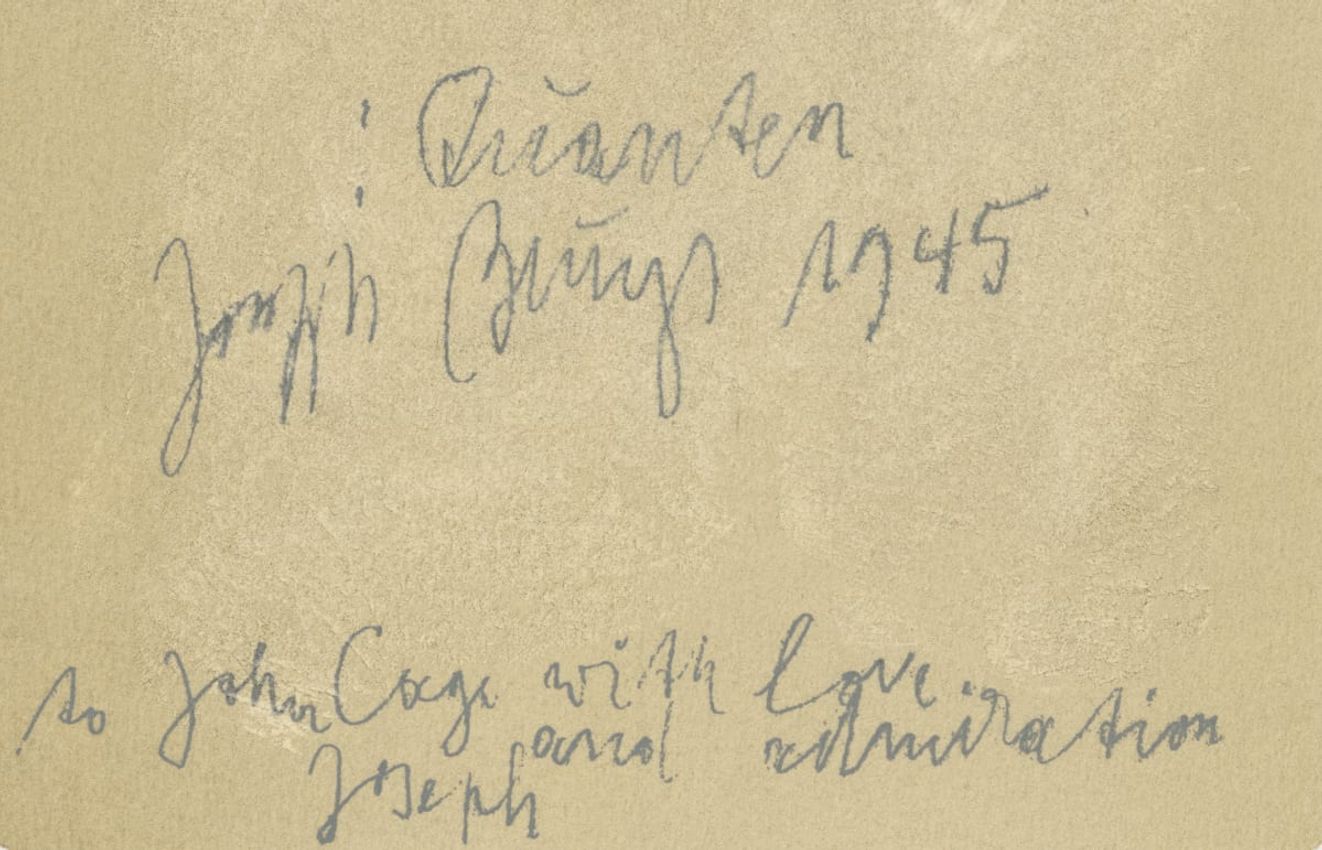 ! Quanten
Joseph Beuys 1945
to John Cage with love
and admiration
Joseph